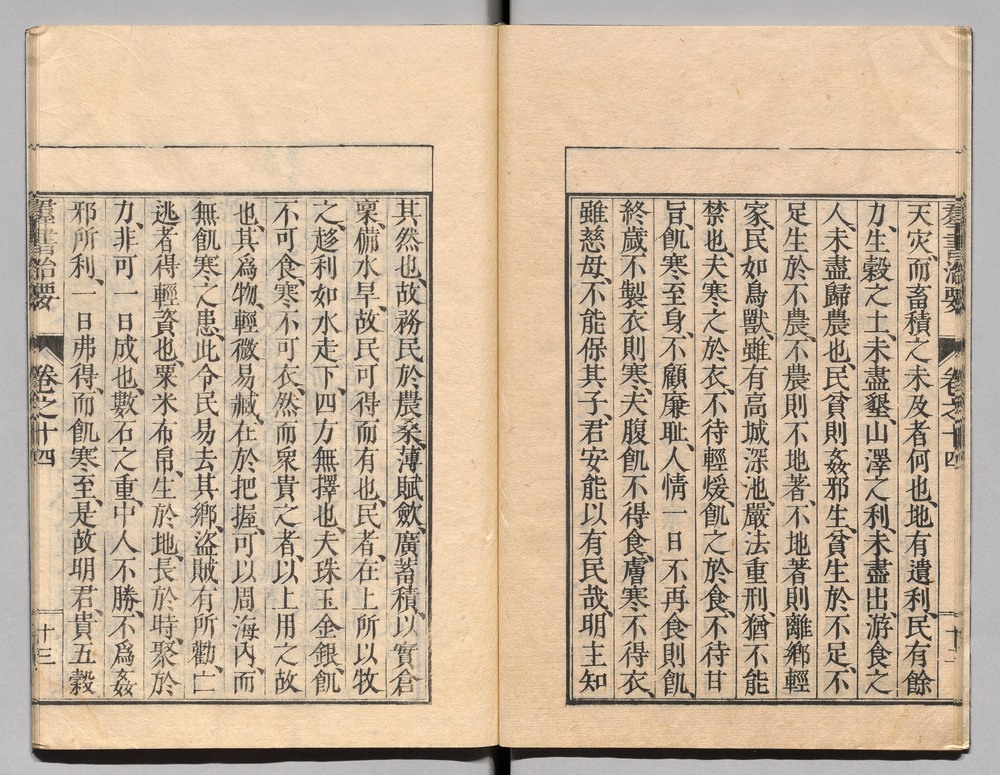 群書治要 卷之十四 十二
天灾、而畜積之未及者何也、地有遺利、民有餘
力、生穀之土、未盡墾、山澤之利、未盡出、游食之
人、未盡歸農也、民貧則姦邪生、貧生於不足、不
足生於不農、不農則不地著、不地著則離鄉輕
家、民如鳥獸、雖有高城深池、嚴法重刑、猶不能
禁也、夫寒之於衣、不待輕煖、飢之於食、不待甘
旨、飢寒至身、不顧廉耻、人情一日不再食則飢、
終歲不製衣則寒、夫腹飢不得食、膚寒不得衣、
雖慈母、不能保其子、君安能以有民哉、明主知
其然也、故務民於農桑、薄賦歛、廣蓄積、以實倉
稟、備水旱、故民可得而有也、民者、在上所以牧
之、趍利如水走下、四方無擇也、夫珠玉金銀、飢
不可食、寒不可衣、然而衆貴之者、以上用之故
也、其爲物、輕微易藏、在於把握、可以周海內、而
無飢寒之患、此令民易去其鄉、盜賊有所勸、亡
逃者得輕資也、粟米布帛、生於地、長於時、聚於
力、非可一日成也、數石之重、中人不勝、不爲姦
邪所利、一日弗得、而飢寒至、是故明君、貴五穀
群書治要 卷之十四 十三